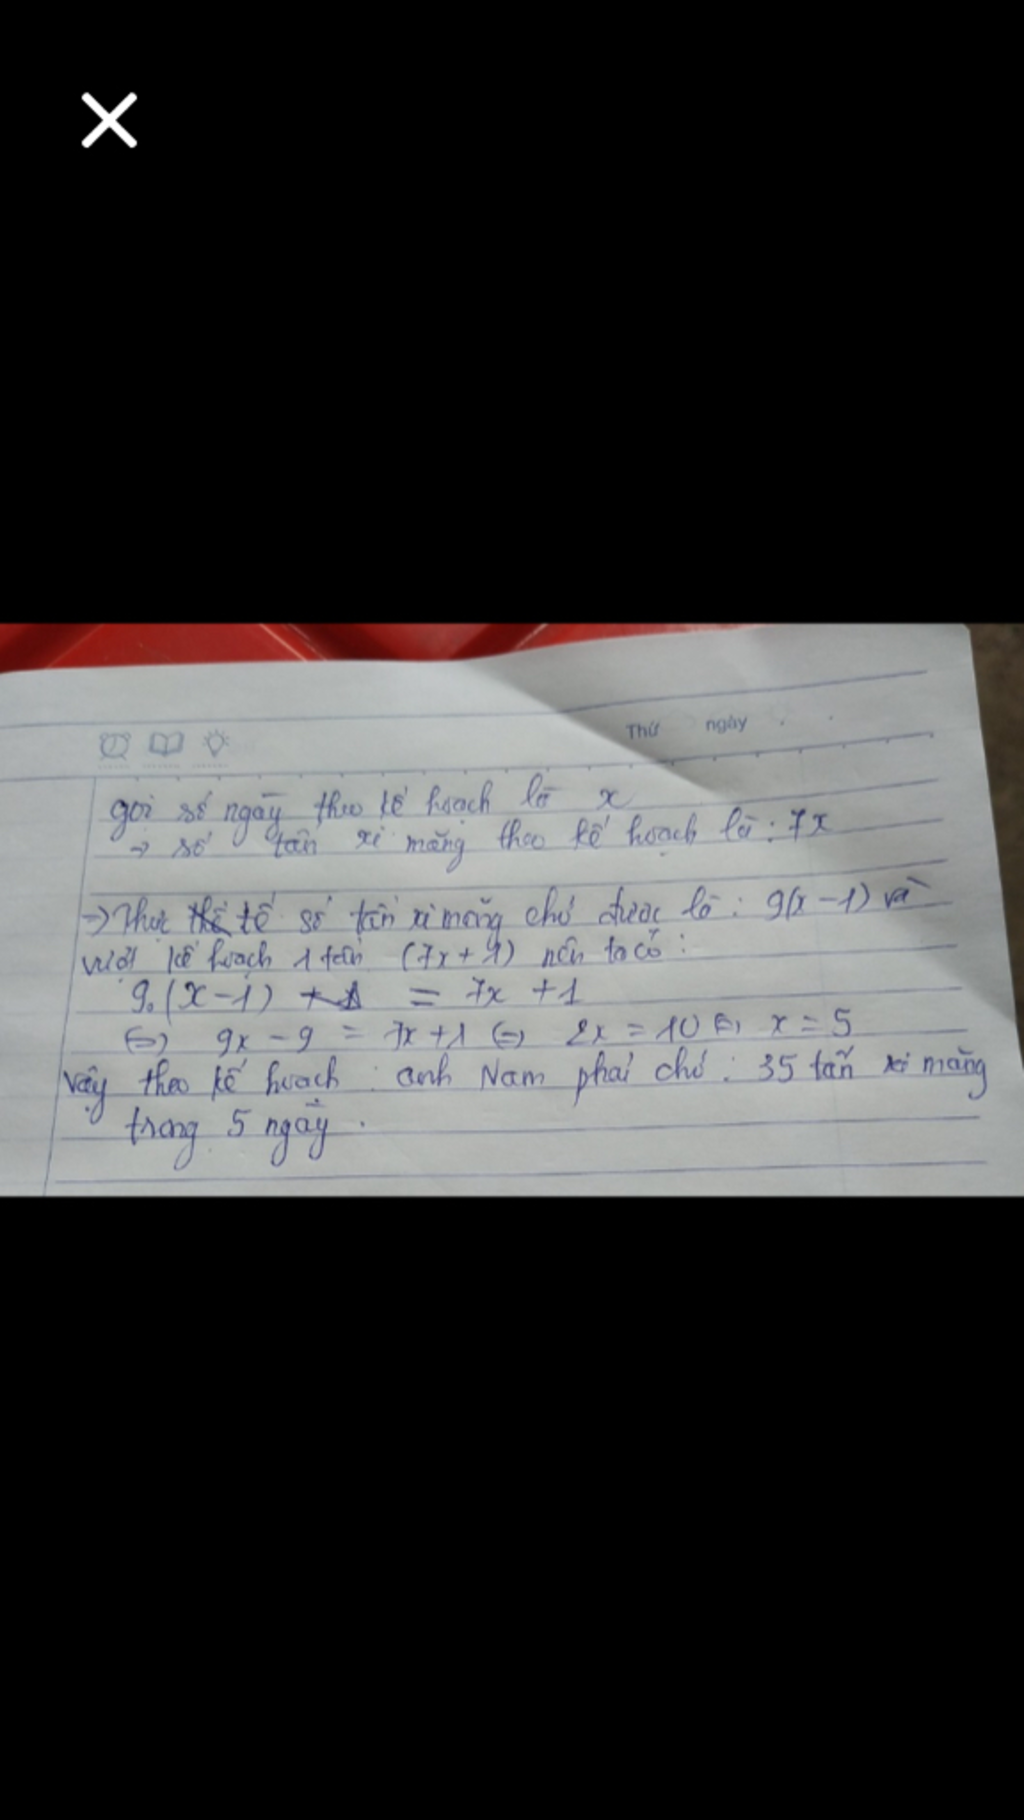 Thứ ngày
gọi số ngày theo kế hoạch là x
→ số tấn xi măng theo kế hoạch là : 7x
→ Thực tế số tấn xi măng chở được là : 9(x - 1) và
vượt kế hoạch 1 tấn (7x + 1) nên ta có :
9.(x - 1) = 7x + 1
(=) 9x - 9 = 7x + 1 (=) 2x = 10 (=) x = 5
Vậy theo kế hoạch : anh Nam phải chở : 35 tấn xi măng
trong 5 ngày .